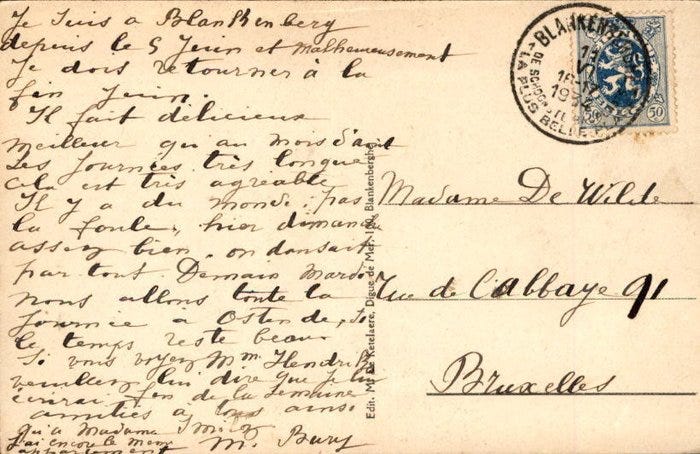 Je suis a Blankenberg
depuis le 5 Juin et malheureusement
Je dois retourner à la
fin Juin.
Il fait délicieux
meilleur qu'au mois d'août
Les Journées très longue
cela est très agréable
Il y a du monde, pas
la foule, hier dimanche
assez bien, on dansait
par tout. Demain Mardi
nous allons toute la
Journée à Ostende, si
le temps reste beau
Si vous voyez Mme Hendrik
veuillez lui dire que je lui
écrirai fin de la Semaine
amitiés a tous ainsi
qu'a Madame
J'ai encore le meme
appartement
M. Bury
Edit. Ketelaere, Digue de Mer, Blankenberghe
BLANKENBERGE
DE SCHOON
LA PLUS BELLE
50
Madame De Wilde
Rue de l'abbaye 91
Bruxelles